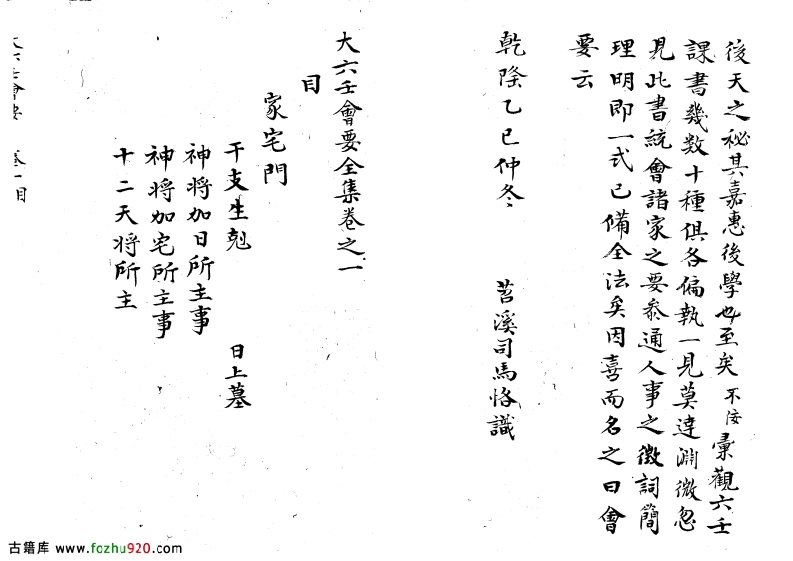 後天之秘其嘉惠後學也至矣不佞彙觀六壬
課書幾数十種俱各偏執一見莫達淵微忽
見此書統會諸家之要叅通人事之徵詞簡
理明即一式已備全法矣因喜而名之曰會
要云
乾隆乙巳仲冬 苕溪司馬恪識
大六壬會要全集卷之一
目
家宅門
干支生尅 日上墓
神将加日所主事
神将加宅所主事
十二天将所主
大六壬會要 卷一目
古籍库 www.fozhu920.com